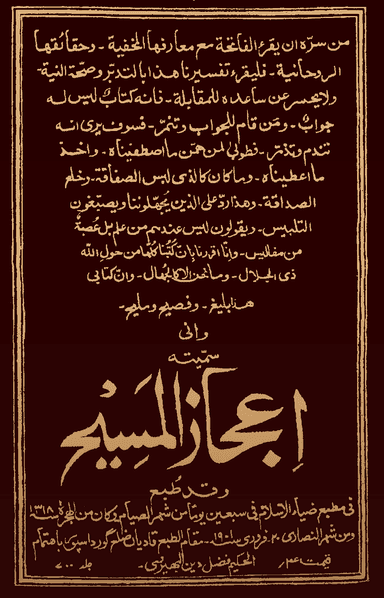 من سرّه ان يقرء الفاتحة مع معارفها المخفية - وحقائقها
الروحانية - فليقرء تفسيرنا هذا بالتدبّر وصحّة النية -
ولا يحسر عن ساعده للمقابلة - فانه كتابٌ ليس له
جوابٌ - ومن قام للجواب وتنمّر - فسوف يرى انه
تندّم وتذمّر - فطوبٰى لمن همّن ما اصطفيناه - واخذ
ما اعطيناه - وما كان كالذى لبس الصفاقة - وخلع
الصداقة - وهذا ردٌ على الذين يجهّلوننا ويصبّغون
التلبيس - ويقولون ليس عندهم من علم بل عُصبةٌ
من مفاليس - وانّا اقررنا بانّ كتبنا كلّها من حول الله
ذى الجلال - وما نحن الا كالجهّال - وانّ كتابى
هذا بليغ - وفصيح ومليح -
وانّى
سمّيته
إعجاز المسيح
وقد طُبع
فى مطبع ضياء الاسلام فى سبعين يوما من شهر الصيام وكان من الهجرة ١٣١٨
ومن شهر النصارى ٢٠ فرورى ١٩٠١ - مقام الطبع قاديان ضلع گورداسپور باهتمام
الحكيم فضل دين البهيروى -
قيمت
جلد ٧٠٠